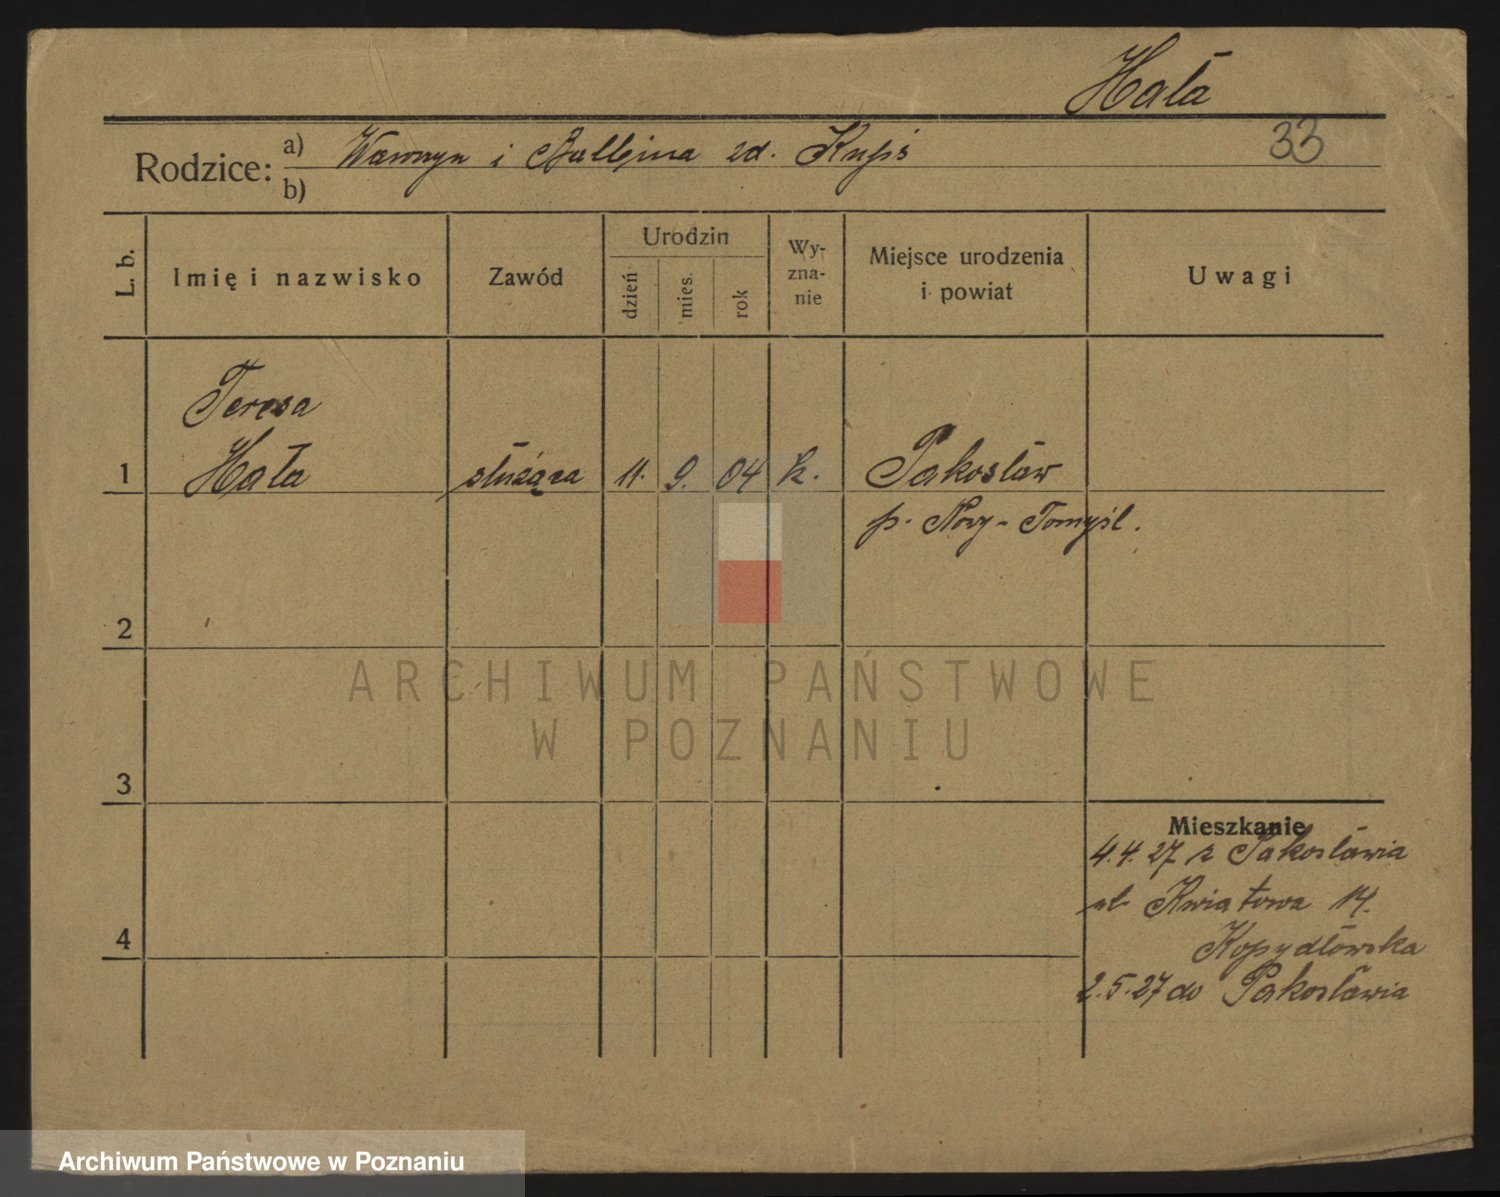 Hała
33
Rodzice:
a) Wawrzyn i Balbina zd. Kupś
b)
L. b.
Imię i nazwisko
Zawód
Urodzin
dzień
mies.
rok
Wy-
zna-
nie
Miejsce urodzenia
i powiat
Uwagi
Teresa
1 Hała służąca 11. 9. 04 k. Pakosław
p. Nowy-Tomyśl.
2
ARCHIWUM PAŃSTWOWE
W POZNANIU
3
Mieszkanie
4.4.27 z Pakosławia
ul Kwiatowa 14.
4
Kopydłowska
2.5.27 do Pakosławia
Archiwum Państwowe w Poznaniu